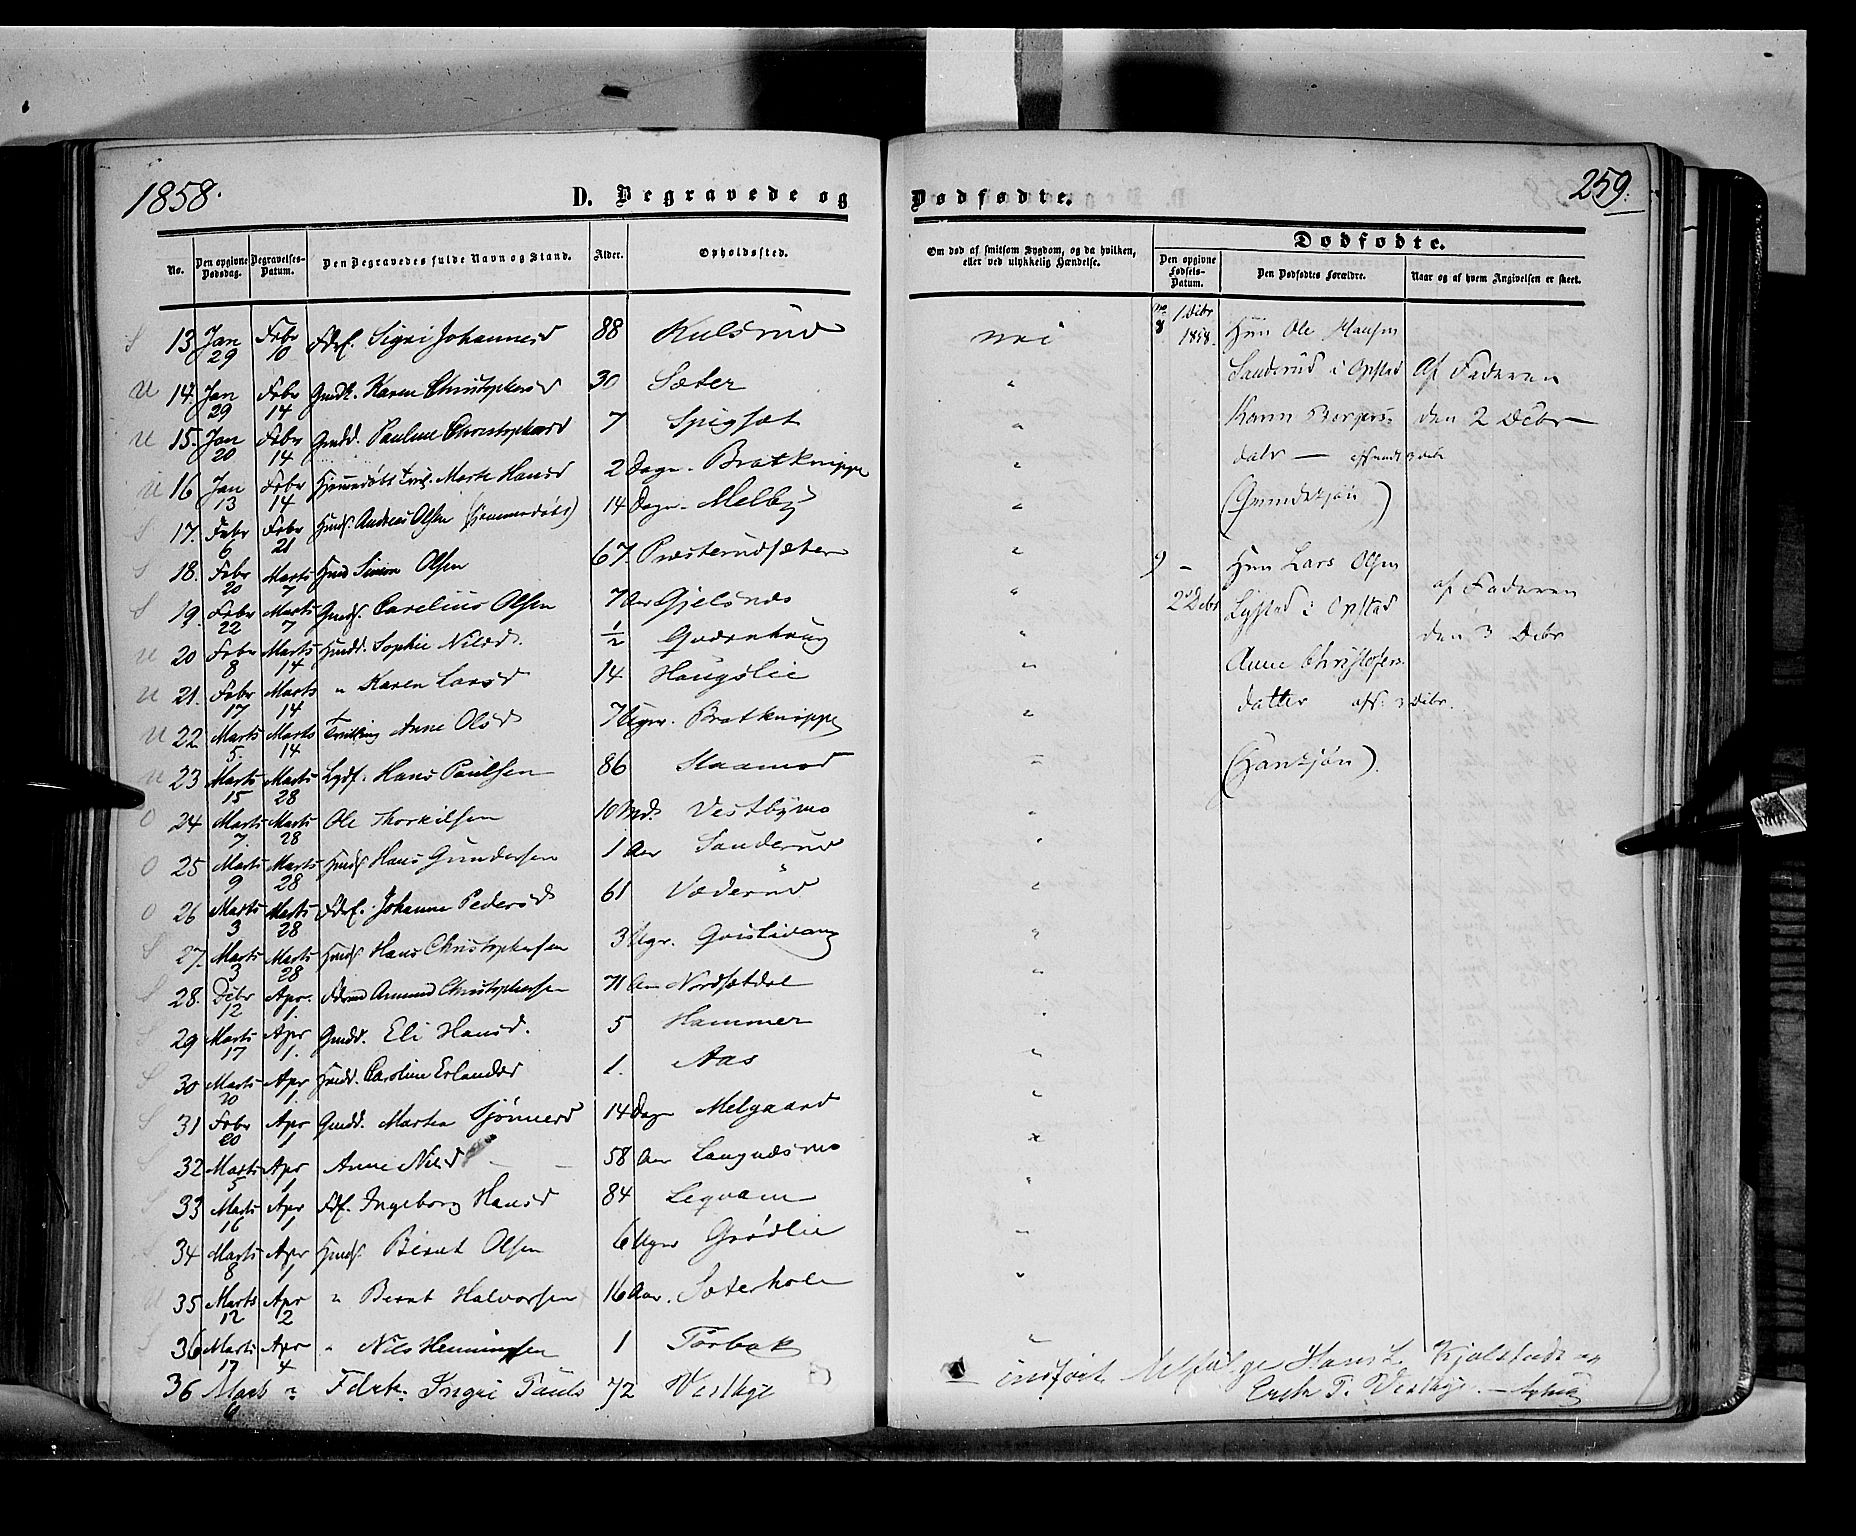 1858.
D. Begravede og Dødfødte.
259.
No.
Den opgivne Dødsdag.
Begravelses-Datum.
Den Begravedes fulde Navn og Stand.
Alder.
Opholdssted.
Om død af smitsom Sygdom, og da hvilken, eller ved ulykkelig Hændelse.
Dødfødte.
Den opgivne Fødsels-Datum.
Den Dødfødtes Forældre.
Naar og af hvem Angivelsen er skeet.
S 13 Jan 29 Febr 10 Fdrf. Sigri Johannesd 88 Kulsrud nei
U 14. Jan 29 Febr 14 Gmdk. Karen Christophersd 30 Sæter "
U 15. Jan 20 Febr 14 Gmdd. Pauline Christophersd 7 Spigsæt "
U 16 Jan 13 Febr 14 Hjemmedøbt Marte Hansd 2 Dage Bratknippe "
S 17. Febr 6 Febr 21 Andreas Olsen (hjemmedøbt) 14 Dage Melby "
S 18. Febr 20 Marts 7 Simon Olsen 67. Præsterudsæter "
S 19. Febr 22 Marts 7 Carelius Olsen 7 Aar Gjelsnes "
U 20 Febr 8 Marts 14 Sophie Nilsd. ½ "
U 21. Febr 17 Marts 14 " Karen Larsd 14 Haugslie "
U 22 Marts 5. Marts 14 Tvilling Anne Olsd 7 Uger. Bratknippe "
U 23 Marts 15 Marts 28 Hans Paulsen 86 Staamod "
O 24 Marts 7. Marts 28 Ole Thorkilsen 10 Md. Vestbymo "
O 25 Marts 9 Marts 28 Hans Gundersen 1 Aar Sanderud "
O 26 Marts 3 Marts 28 Fdrf. Johanne Pedersd 61 Væderud "
S 27. Marts 3 Marts 28 Hans Christophersen 3 Uger. "
S 28. Debr 12 Apr. 1. Amund Christophersen 71 Aar Nordsætdal "
S 29 Marts 17 Apr 1. Gmdd. Eli Hansd. 5 Hammer "
S 30 Marts 30 Apr 1. Caroline Erlandsd 1. Aas "
S 31 Febr 20 Apr 1 Gmdd. Marthea Sjønnesd 14 Dage Melgaard "
S 32 Marts 5 Apr 1 Anne Nilsd 58 Aar Langnæsmo "
S 33 Marts 16 Apr 1 Fdf. Ingeborg Hansd 84 Legvam "
S 34 Marts 8 Apr 1 Bernt Olsen 6 Uger Grødlie "
U 35 Marts 12 Apr 2 " Bernt Halvorsen 16 Aar. Sæterhole "
S 36 Marts 17 Apr 4 " Nils Henningsen 1 Torbæk "
36 Marts 6 " Fdrk. Ingri Pauls 72 Vestbye
8 1 Debr 1858.
Hmn Ole Hansen
Sanderud i Opstad
Karen Borgers-
datr —
Af Faderen
den 2 Debr —
9 – 2 Debr
Hmn Lars Olsen
i Opstad
Anne Christofers-
datter
af Faderen
den 3 Debr
indført Ifølge Hans L. Kjølstads og
T. Vestbye.